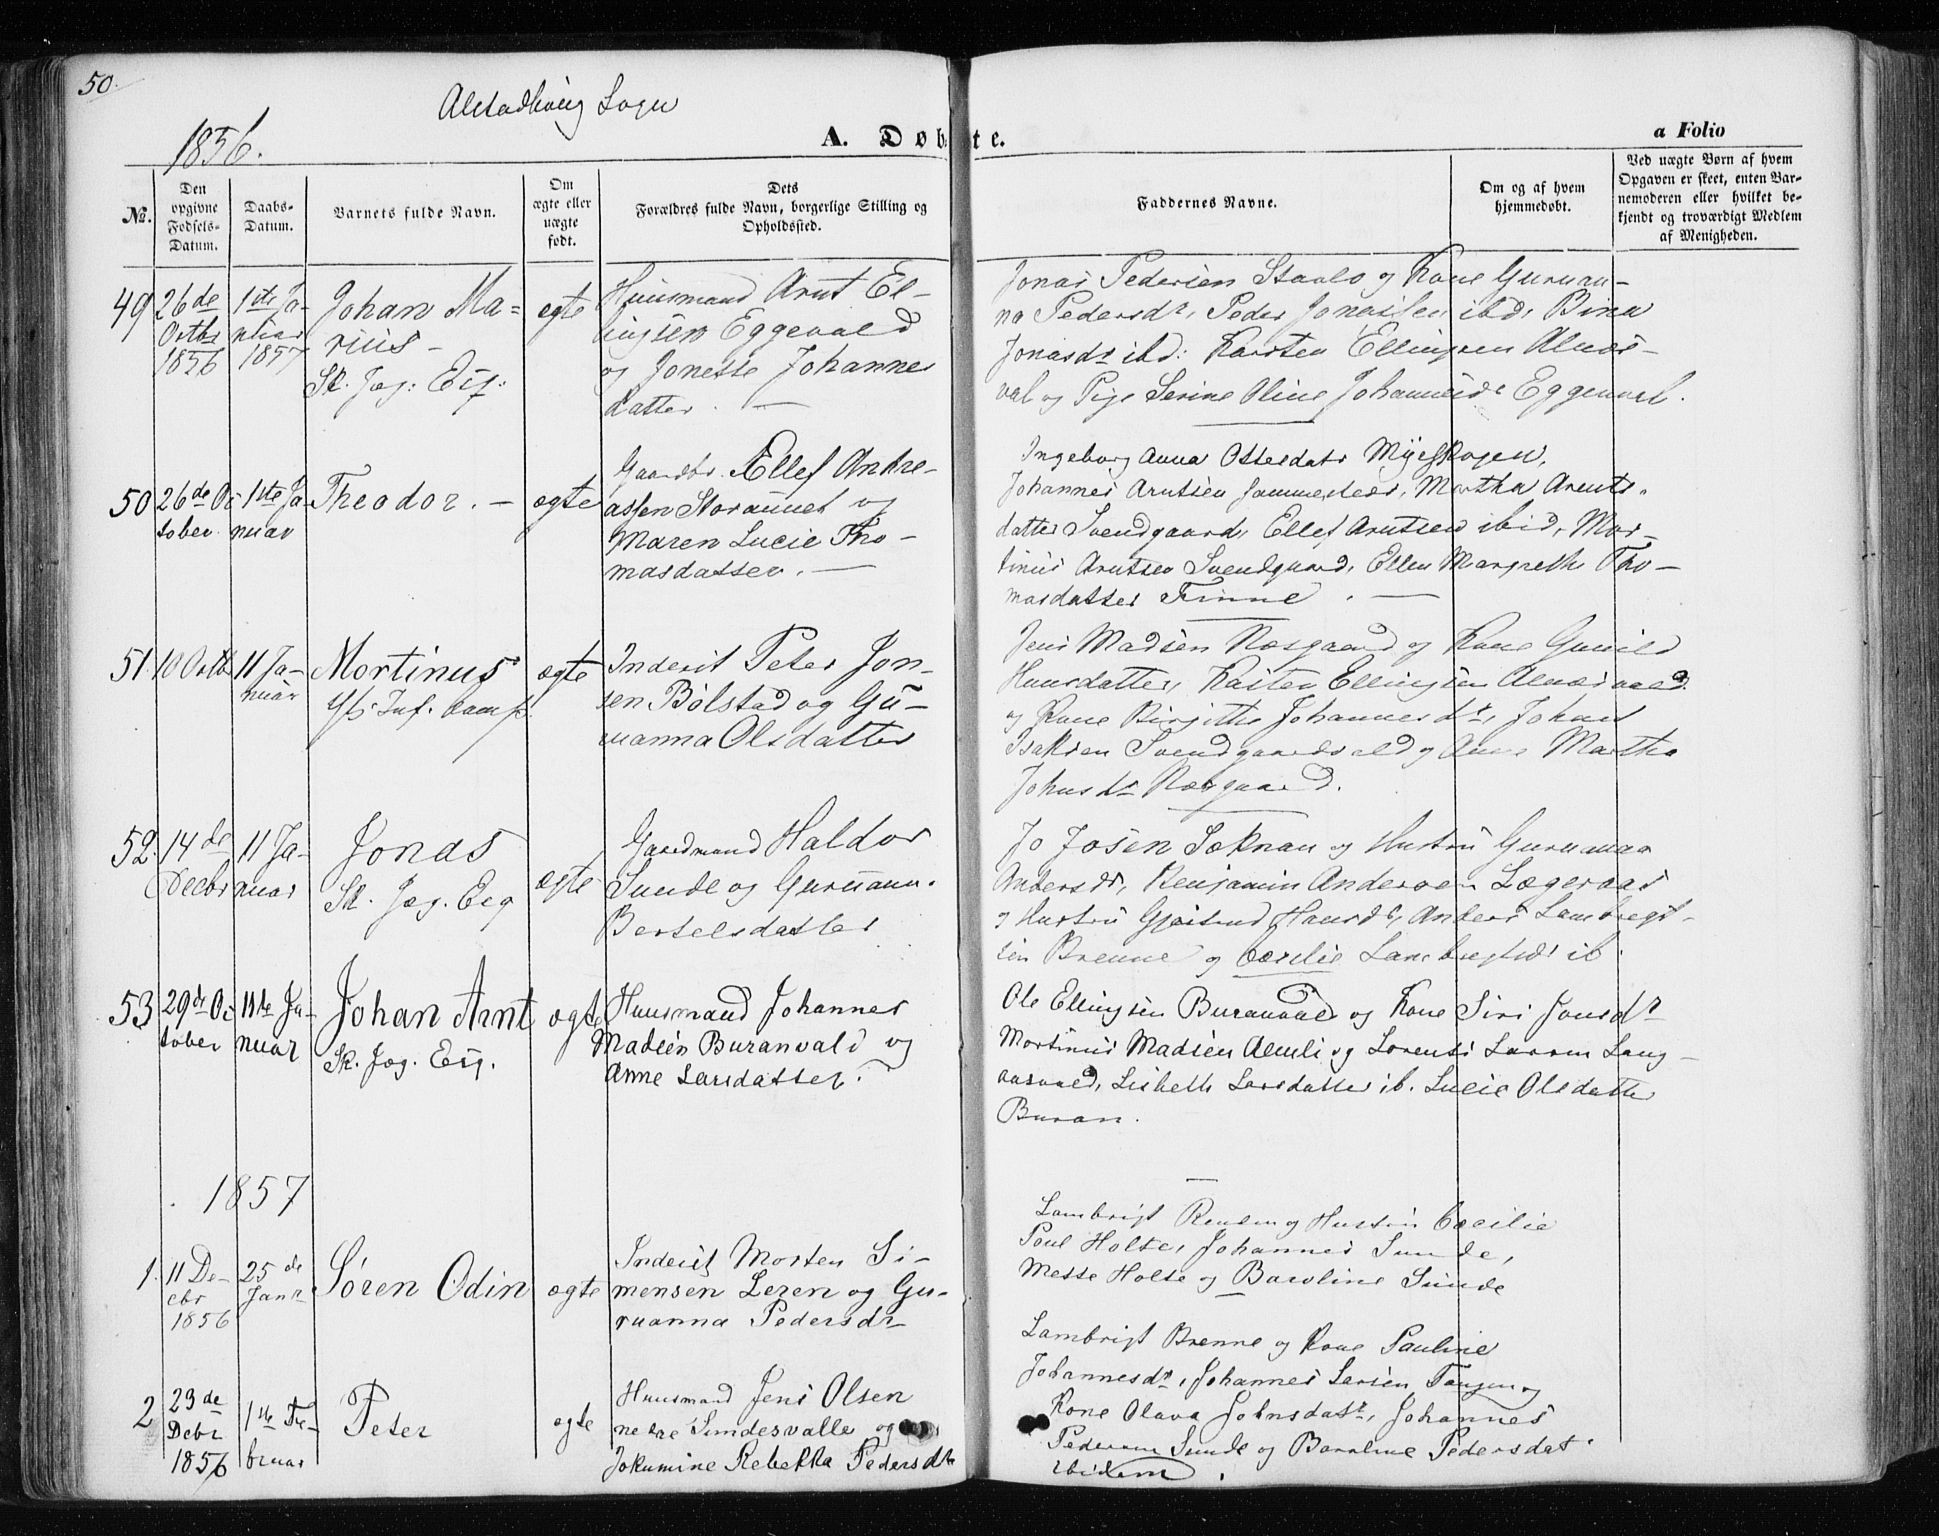 50.
Alstadhoug Sogn
1856.
A. Døbte.
a Folio
№.
Den opgivne Fødsels-Datum.
Daabs-Datum.
Barnets fulde Navn.
Om ægte eller uægte født.
Dets Forældres fulde Navn, borgerlige Stilling og Opholdssted.
Faddernes Navne.
Om og af hvem hjemmedøbt.
Ved uægte Børn af hvem Opgaven er skeet, enten Barnemoderen eller hvilket bekjendt og troværdigt Medlem af Menigheden.
49
26de Octbr 1856
1ste Januar 1857
Johan Ma=
rius -
Sk. Jæg: Esq:
egte
Huusmand Arnt El-
lingsen Eggevald
og Jonette Johannes
datter. —
Jonas Pedersen Staalo og Kone Guruan-
na Pedersdr, Peder Jonassen ibd, Bina
Jonasdr ibd: Karsten Ellingsen Alnæs-
val og Pige Serine Oline Johannesdr Eggenval.
50
26de October
1ste Januar
Theodor. -
ægte
Gaardbr. Ellef Andre-
assen Storaunet og
Maren Lucie Tho-
masdatter. —
Ingeborg Anna Ottesdatr Myrskogen,
Johannes Arntsen Hammersteds, Martha Arents-
datter Svendgaard, Ellef Arntsen ibid, Mor-
tinus Arntsen Svendgaard, Ellen Margreth Tho-
masdatter Finne. —
51.
10 Octb
11 Januar
Mortinus
Inf. Comp.
ægte
Inderst Peter Jon-
sen Bølstad og Gu-
ruanna Olsdatter
Jens Madsen Næsgaard og Kone Gunild
Hansdatter, Karsten Ellingsen Alnæsvald
og Kone Birgitte Johannesdr, Johan
Isaksen Svendgaardsvald og Anne Martha
Johnsdr Næsgaard.
52.
14de Decbr
11 Januar
Jonas
Sk. Jæg. Esq
ægte
Gaardmand Haldor
Sunde og Guruanna
Bertelsdatter
Jo Josen Søknan og Hustru Guruanna
Andersdr, Benjamin Andersen Lægeraas
og Hustru Gjertrud Hansdr, Anders Lambregt-
sen Brenne og Cecilie Lambregtsdr ib.
53
29de October
11te Januar
Johan Arnt
Sk. Jæg. Esq.
ægte
Huusmand Johannes
Madsen Buranvald og
Anne Larsdatter.
Ole Ellingsen Buranvald og Kone Siri Jonsdr
Mortinus Madsen Almli og Lorents Larsen Lang-
aasvald, Lisbeth Larsdatter ib. Lucie Olsdatter
Buran.
1857
1.
11 Decbr 1856
25de Janr
Søren Odin
ægte
Inderst Morten Si-
mensen Leren og Gu-
ruanna Pedersdr
Lambrigt Reulen og Hustru Cecilie
Poul Holte, Johannes Sunde,
Mette Holte og Baroline Sunde
2
23de Debr 1856
1ste Februar
Peter
egte
Huusmand Jens Olsen
nedre Sundesvalle og
Jokumine Rebekka Pedersdr
Lambrigt Brenne og Kone Pauline
Johannesdr, Johannes Larsen Tangen og
Kone Olava Johnsdatr, Johannes
Pedersen Sunde og Baroline Pedersdat.
ibidem.